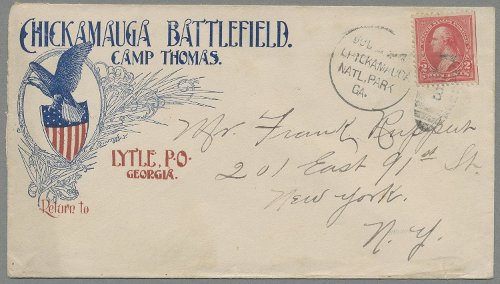 CHICKAMAUGA BATTLEFIELD.
CAMP THOMAS.
CHICKAMAUGA
NATL. PARK
GA.
LYTLE, P.O.
GEORGIA.
Return to
Mr. Frank Ruppert
201 East 91st St.
New York.
N. Y.